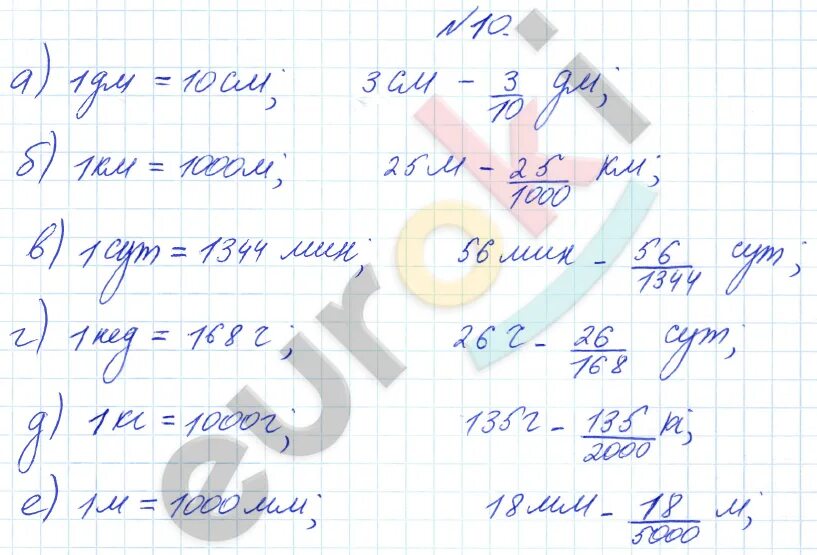 №10.
а) 1дм = 10см; 3см - 3/10 дм;
б) 1км = 1000м; 25м - 25/1000 км;
в) 1сут = 1344 мин; 56мин - 56/1344 сут;
г) 1нед = 168ч; 26ч - 26/168 сут;
д) 1кг = 1000г; 135г - 135/2000 кг;
е) 1м = 1000мм; 18мм - 18/5000 м;
euroki